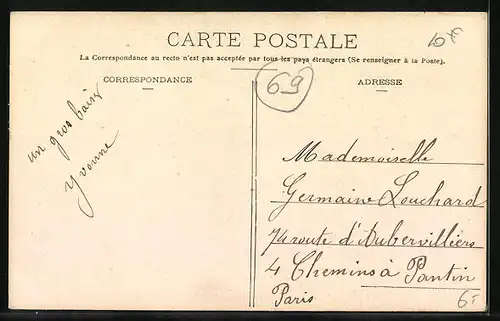 CARTE POSTALE
La Correspondance au recto n'est pas acceptée par tous les pays étrangers (Se renseigner à la Poste).
CORRESPONDANCE
un gros baiser
Yvonne
69
ADRESSE
Mademoiselle
Germaine Louchard
74 route d'Aubervilliers
4 Chemins à Pantin
Paris
6-